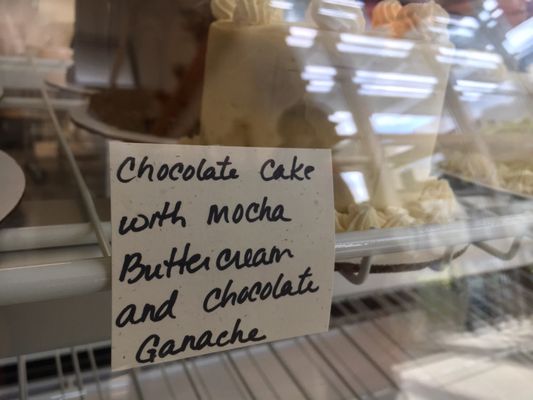 Chocolate Cake
with Mocha
Buttercream
and chocolate
Ganache